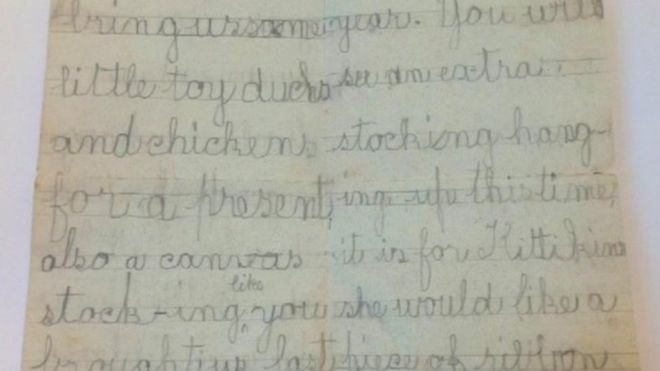 bring us some
little toy ducks
and chickens
for a present,
also a canvas
stock-ing like you
brought us last
year. You will
see an extra
stocking hang-
ing up this time,
it is for Kittikins
she would like a
piece of ribbon